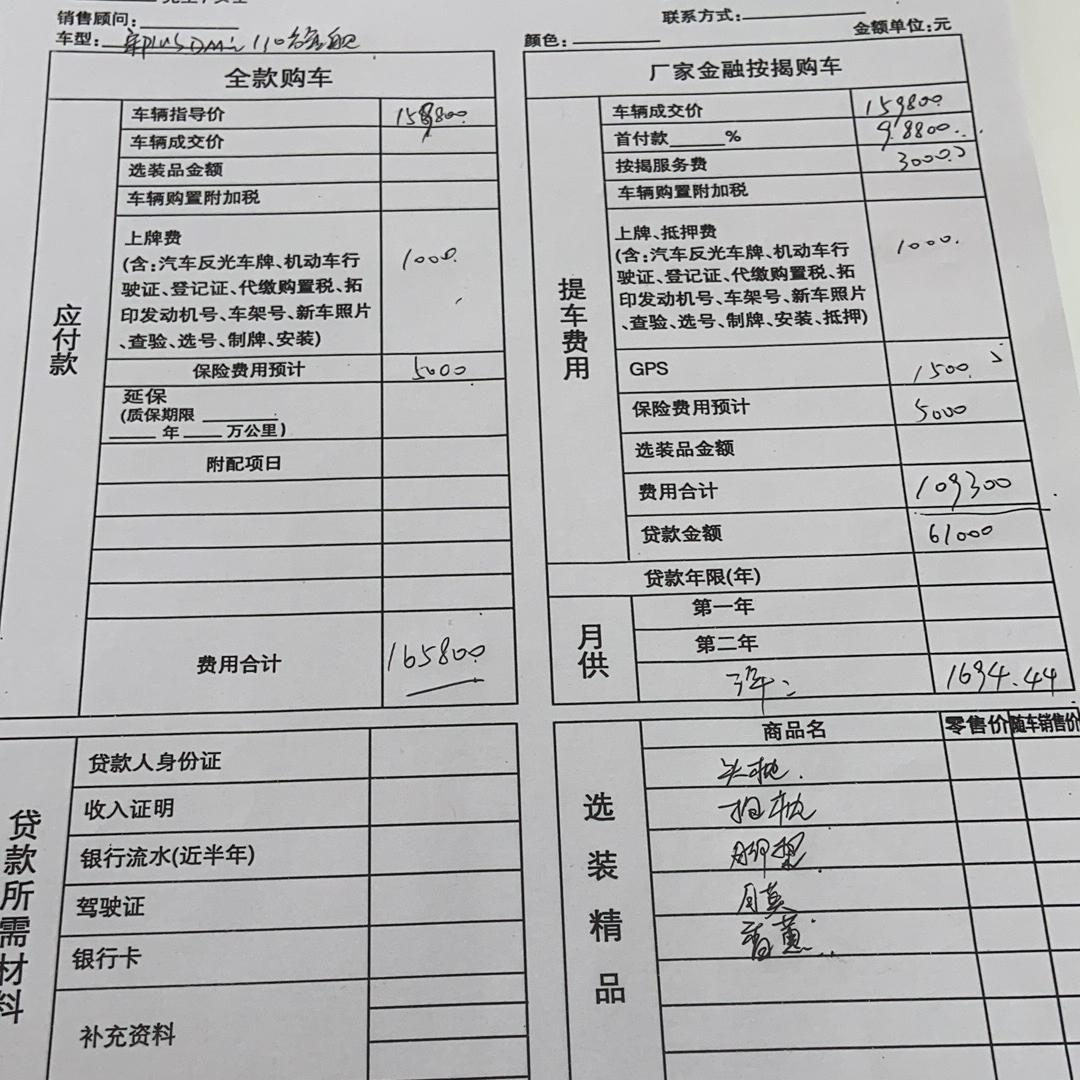 销售顾问:
联系方式:
车型: 宋PLUS DMi 110 旗舰
颜色:
金额单位:元
全款购车
应付款
车辆指导价 159800
车辆成交价
选装品金额
车辆购置附加税
上牌费
(含:汽车反光车牌、机动车行
驶证、登记证、代缴购置税、拓
印发动机号、车架号、新车照片
、查验、选号、制牌、安装)
1000.
保险费用预计 5000
延保
(质保期限
年 万公里)
附配项日
费用合计 165800
厂家金融按揭购车
提车费用
车辆成交价 159800
首付款 % 98800
按揭服务费 3000
车辆购置附加税
上牌、抵押费
(含:汽车反光车牌、机动车行
驶证、登记证、代缴购置税、拓
印发动机号、车架号、新车照片
、查验、选号、制牌、安装、抵押)
1000.
GPS 1500
保险费用预计 5000
选装品金额
费用合计 109300
贷款金额 61000
贷款年限(年)
月供
第一年
第二年
3年: 1694.44
贷款所需材料
贷款人身份证
收入证明
银行流水(近半年)
驾驶证
银行卡
补充资料
选装精品
商品名 零售价 随车销售价
头枕
抱枕
脚垫
香薰